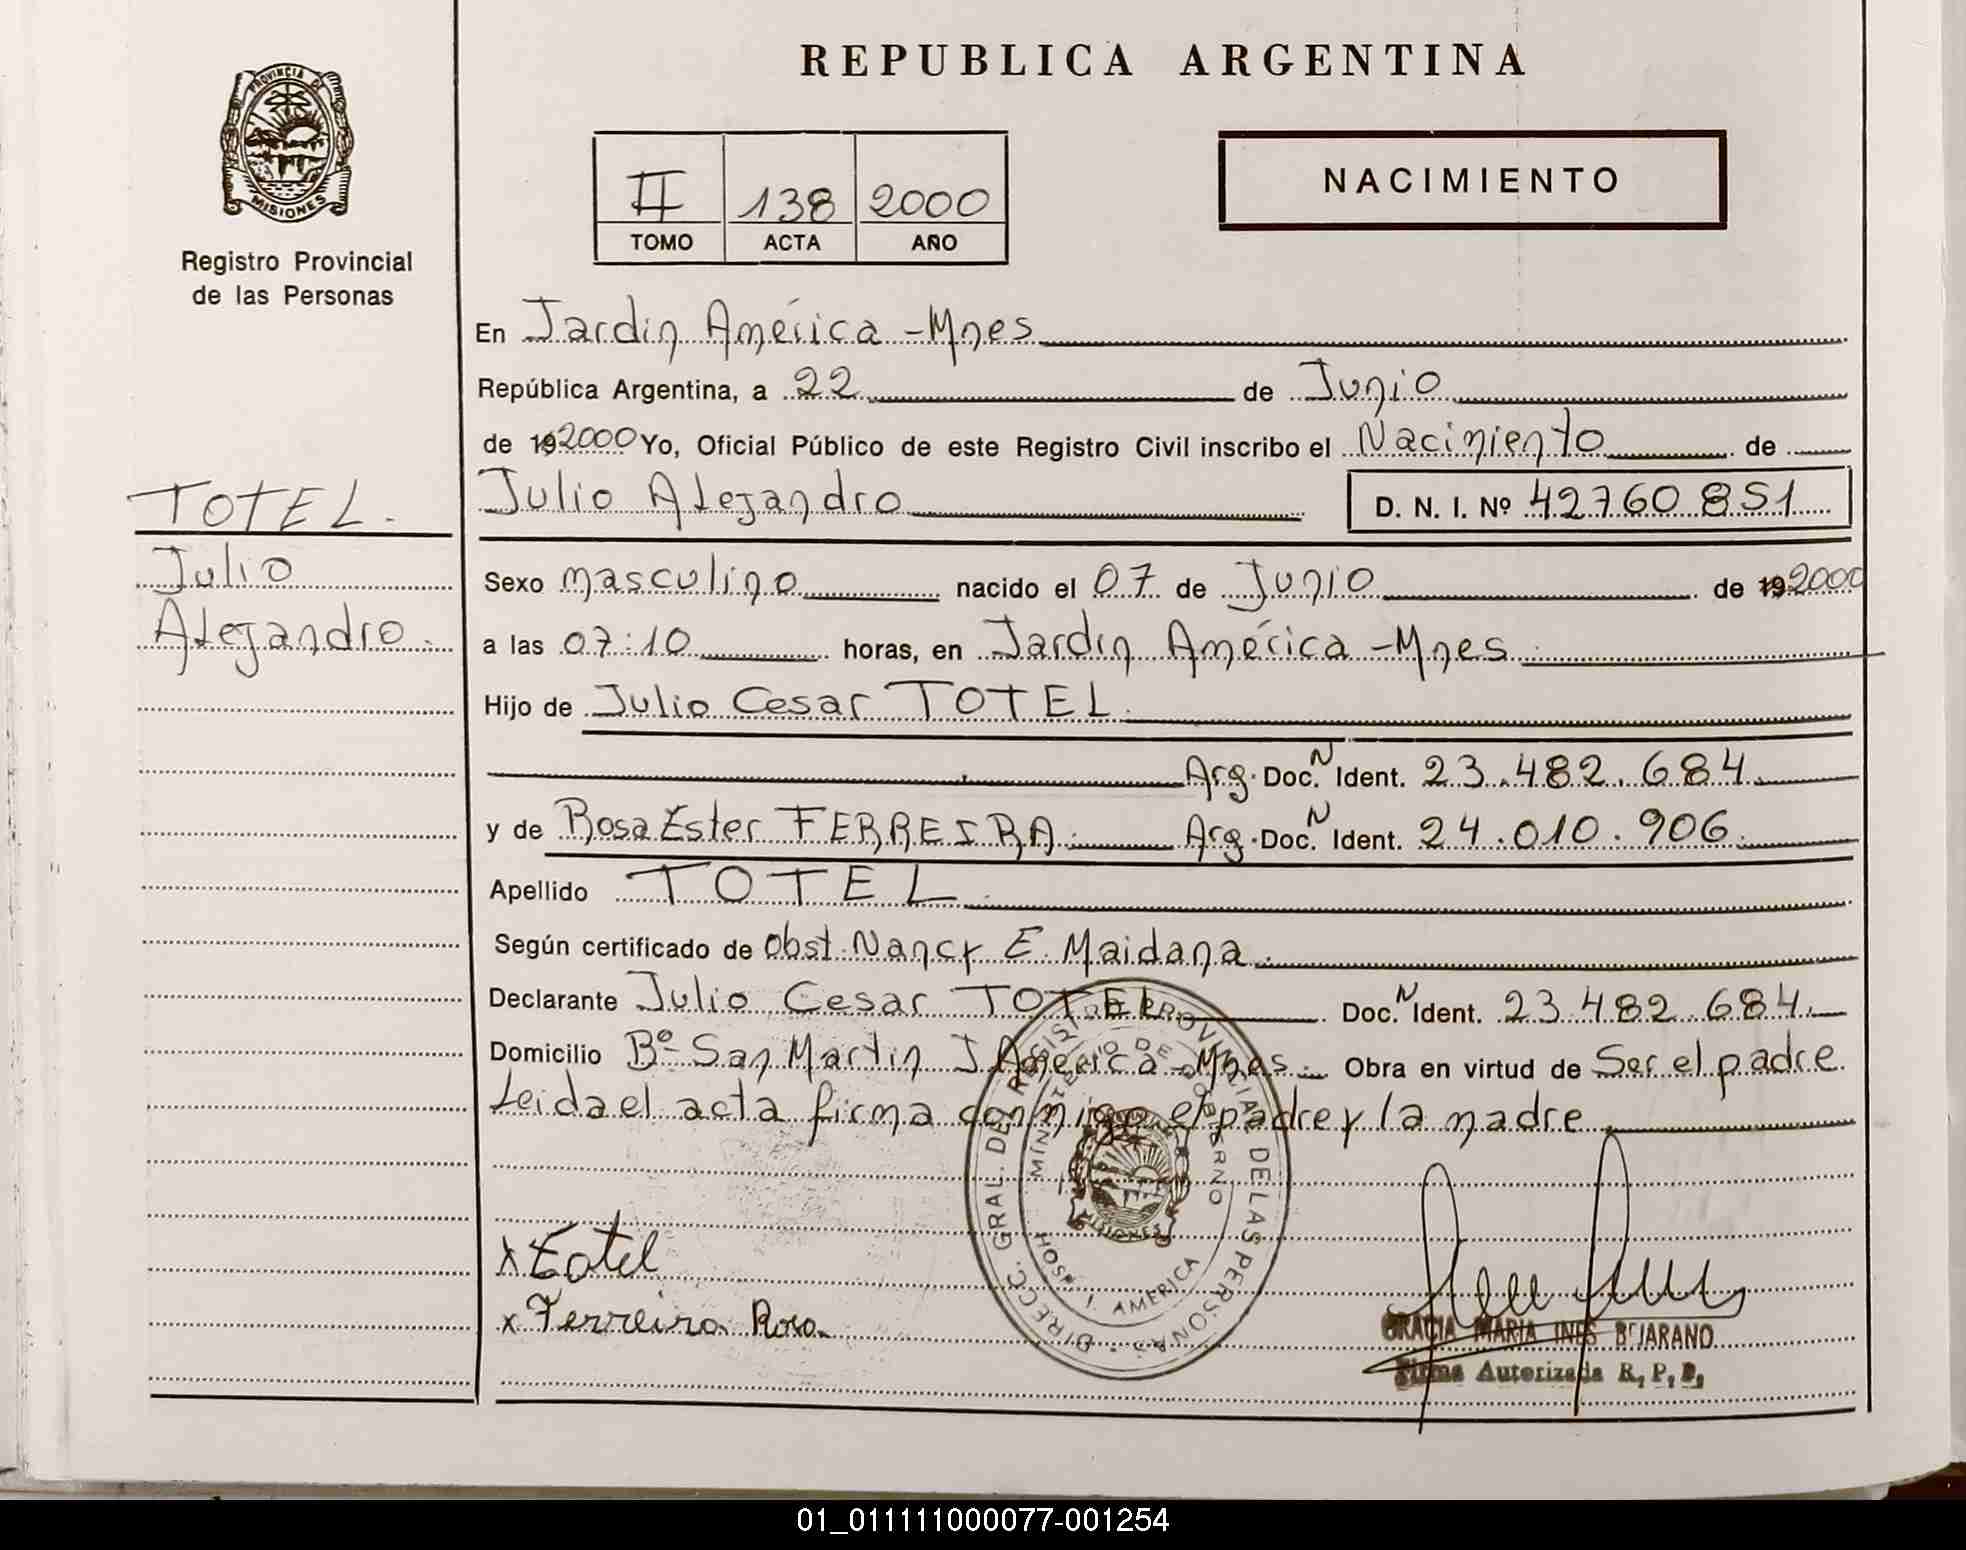 REPUBLICA ARGENTINA
PROVINCIA DE
MISIONES
Registro Provincial
de las Personas
II 138 2000
TOMO ACTA AÑO
NACIMIENTO
En Jardin América - Mnes
República Argentina, a 22 de Junio
de 192000 Yo, Oficial Público de este Registro Civil inscribo el Nacimiento de
Julio Alejandro D. N. I. Nº 42760851
TOTEL.
Julio
Alejandro.
Sexo masculino nacido el 07 de Junio de 192000
a las 07:10 horas, en Jardin América - Mnes
Hijo de Julio Cesar TOTEL
Arg. Doc. N Ident. 23.482.684
y de Rosa Ester FERREIRA Arg. Doc. N Ident. 24.010.906
Apellido TOTEL
Según certificado de Obst. Nancy E. Maidana
Declarante Julio Cesar TOTEL Doc. N Ident. 23.482.684
Domicilio Bº San Martin J. América - Mnes Obra en virtud de Ser el padre
Leida el acta firma conmigo el padre y la madre
DIRECC. GRAL. DEL REGISTRO PROVINCIAL DE LAS PERSONAS
MINISTERIO DE GOBIERNO
MISIONES
HOSP. J. AMERICA
x Totel
x Ferreira Rosa
GRACIA MARIA INES BEJARANO
Firma Autorizada R. P. P.
01_011111000077-001254